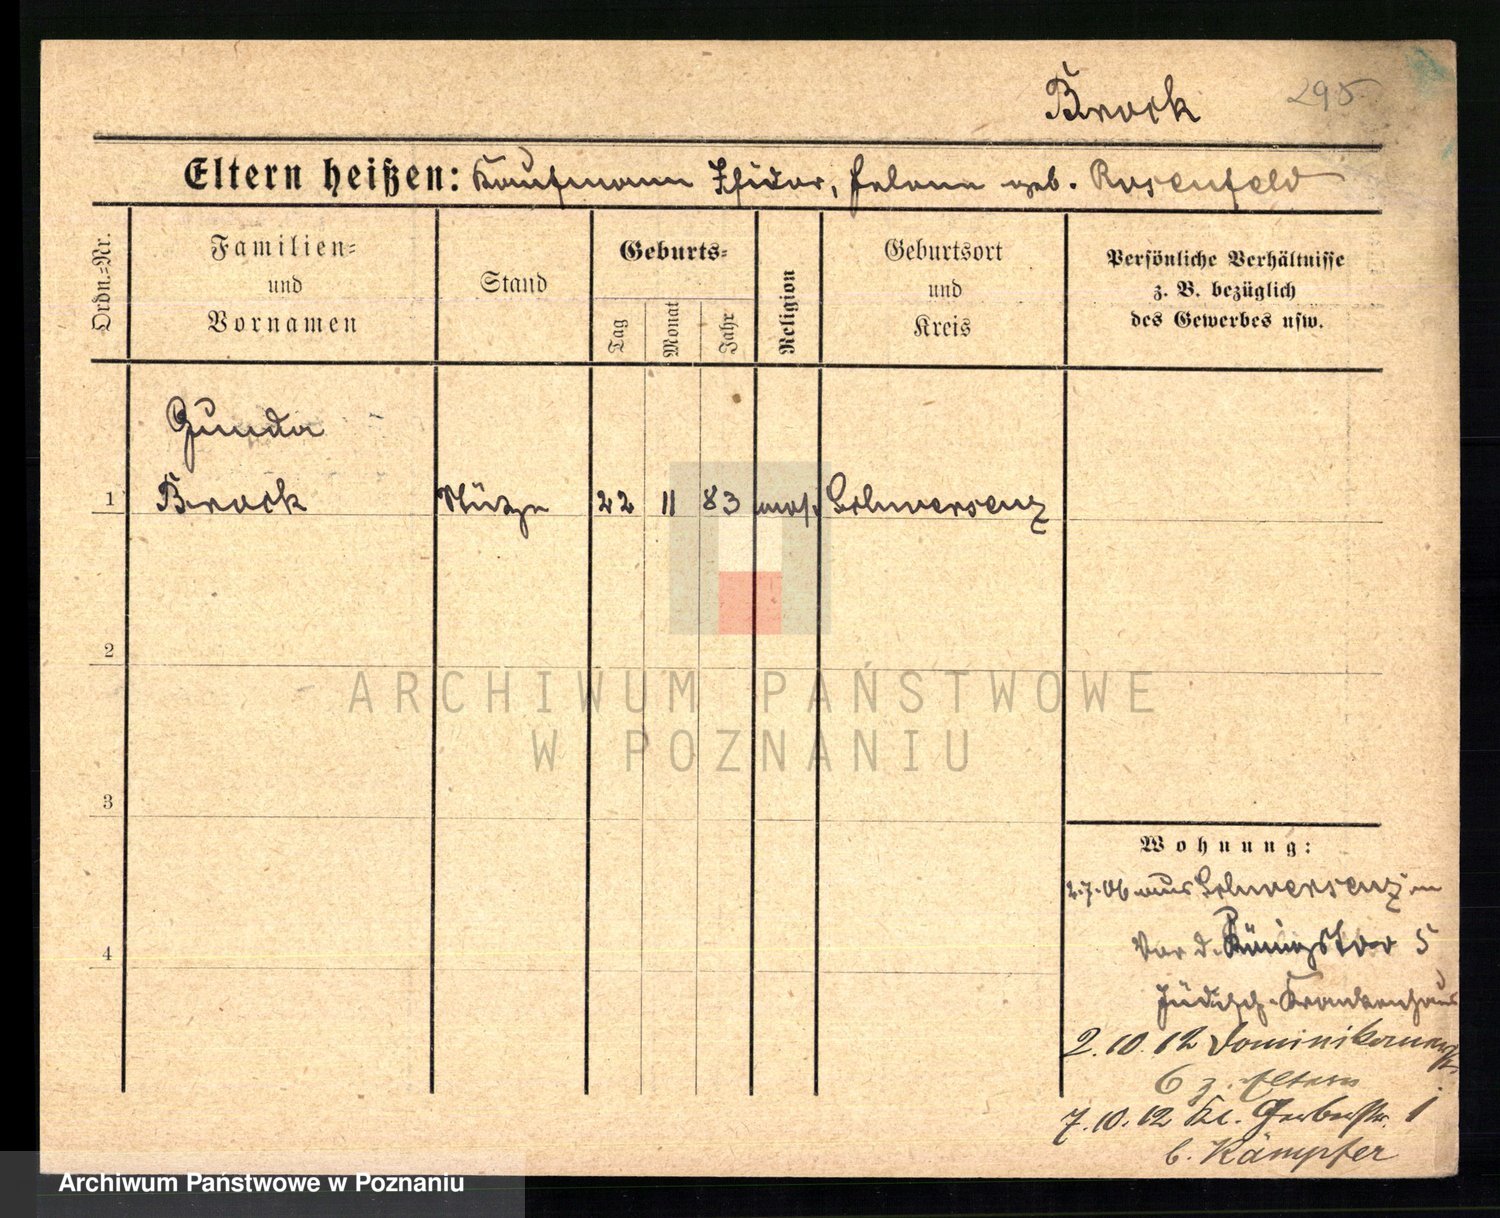 Brock 295
Eltern heißen: Kaufmann Isidor, Helene geb. Rosenfeld
Ordn.=Nr.
Familien=
und
Vornamen
Stand
Geburts=
Tag
Monat
Jahr
Religion
Geburtsort
und
Kreis
Persönliche Verhältnisse
z. B. bezüglich
des Gewerbes usw.
Gunda
1 Brock Stütze 22 11 83 mos. Schwersenz
2
3
4
Wohnung:
2.7.06 aus Schwersenz in
Vor d. Königstor 5
Jüdisch. Krankenhaus
2.10.12 Dominikanerstr.
6 z. Eltern
7.10.12 Kl. Gerberstr. 1
b. Kämpfer
ARCHIWUM PAŃSTWOWE
W POZNANIU
Archiwum Państwowe w Poznaniu